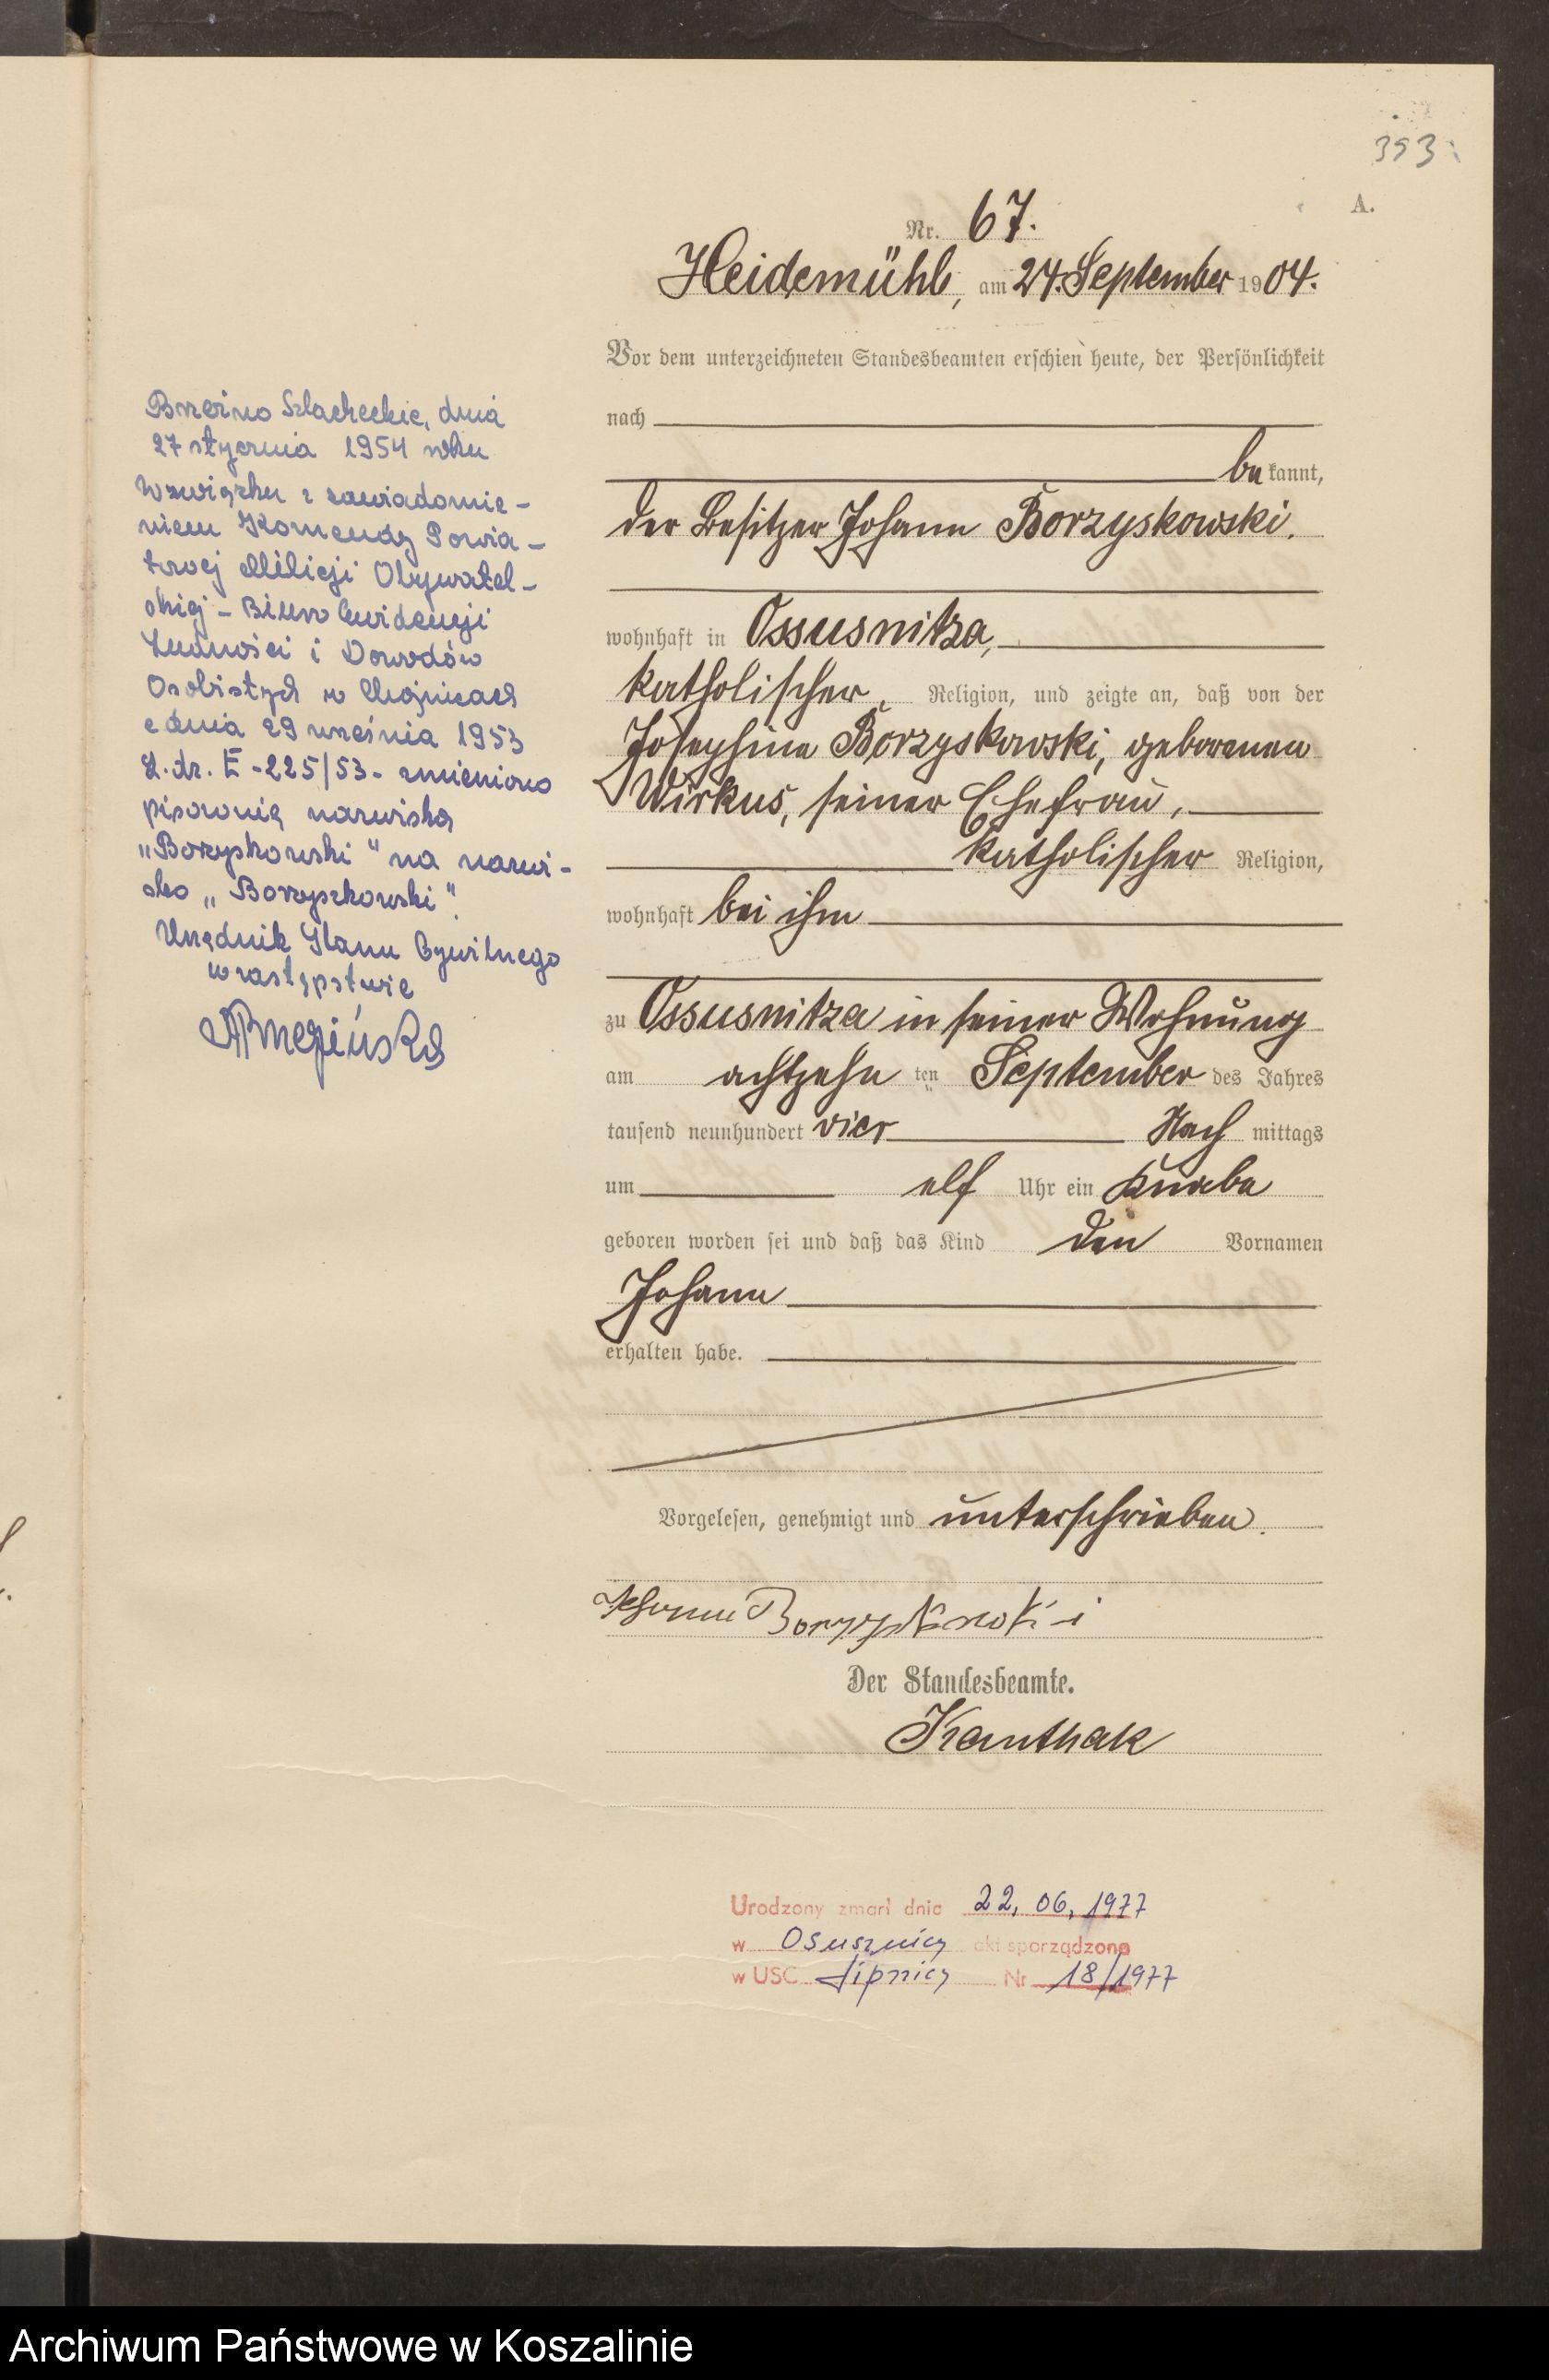 393
A.
Nr. 67.
Heidemühl, am 24. September 1904.
Vor dem unterzeichneten Standesbeamten erschien heute, der Persönlichkeit
nach
bekannt,
der Besitzer Johann Borzyskowski.
wohnhaft in Ossusnitza,
katholischer Religion, und zeigte an, daß von der
Josephine Borzyskowski, geborenen
Wirkus, seiner Ehefrau,
katholischer Religion,
wohnhaft bei ihm
zu Ossusnitza in seiner Wohnung
am achtzehn ten September des Jahres
tausend neunhundert vier Nach mittags
um elf Uhr ein Knabe
geboren worden sei und daß das Kind den Vornamen
Johann
erhalten habe.
Vorgelesen, genehmigt und unterschrieben.
Johann Borzyskowski
Der Standesbeamte.
Kanthak
Brzeźno Szlacheckie, dnia
27 stycznia 1954 roku
W związku z zawiadomie-
niem Komendy Powia-
towej Milicji Obywatel-
skiej - Biuro Ewidencji
Ludności i Dowodów
Osobistych w Chojnicach
z dnia 29 września 1953
L. dz. E-225/53 - zmieniono
pisownię nazwiska
„Borzyskowski" na nazwi-
sko „Borzyszkowski".
Urzędnik Stanu Cywilnego
w zastępstwie
Urodzony zmarł dnia 22. 06. 1977
w Osusznicy akt sporządzono
w USC Lipnicy Nr 18/1977
Archiwum Państwowe w Koszalinie